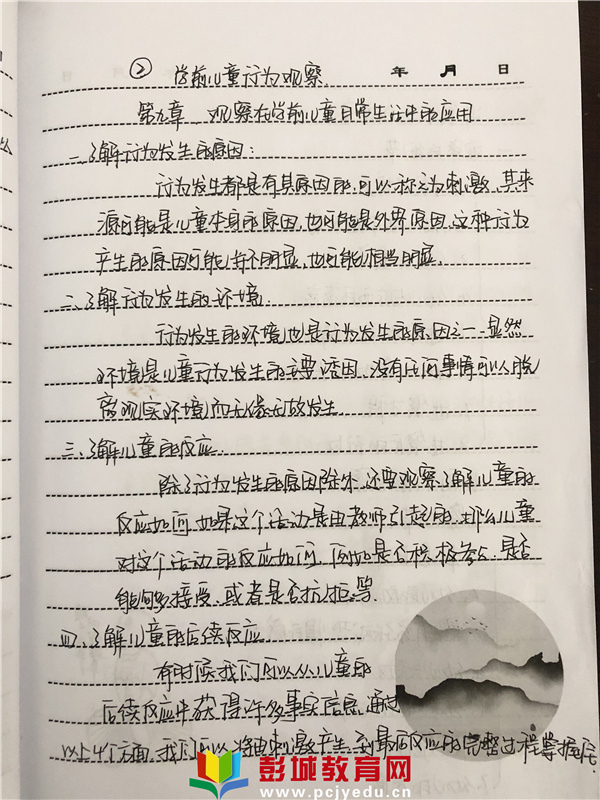 ② 学前儿童行为观察 年 月 日
第九章 观察在学前儿童日常生活中的应用
一、了解行为发生的原因:
行为发生都是有其原因的,可以称之为刺激,其来
源可能是儿童本身的原因,也可能是外界原因,这种行为
产生的原因可能得不明显,也可能相当明显.
二、了解行为发生的环境.
行为发生的环境也是行为发生的原因之一,显然
环境是儿童行为发生的主要诱因,没有任何事情可以脱
离现实环境而无缘无故发生
三、了解儿童的反应
除了行为发生的原因除外,还要观察了解儿童的
反应如何,如果这个活动是由教师引起的,那么儿童
对这个活动的反应如何,例如是否积极参与,是否
能够接受,或者是否抗拒等.
四、了解儿童的后续反应
有时候我们可以从儿童的
后续反应中获得许多事实信息,通过
以上4个方面,我们可以将由刺激产生到最后反应的完整过程掌握住.
彭城教育网
www.pcjyedu.cn